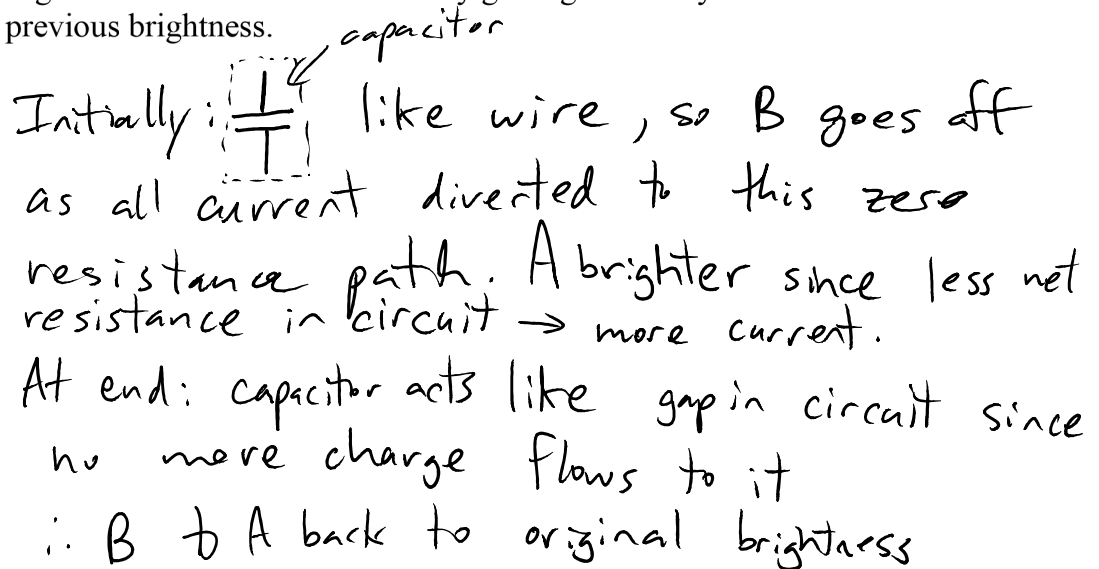 previous brightness.
capacitor
Initially: like wire, so B goes off
as all current diverted to this zero
resistance path. A brighter since less net
resistance in circuit → more current.
At end: capacitor acts like gap in circuit since
no more charge flows to it
∴ B & A back to original brightness